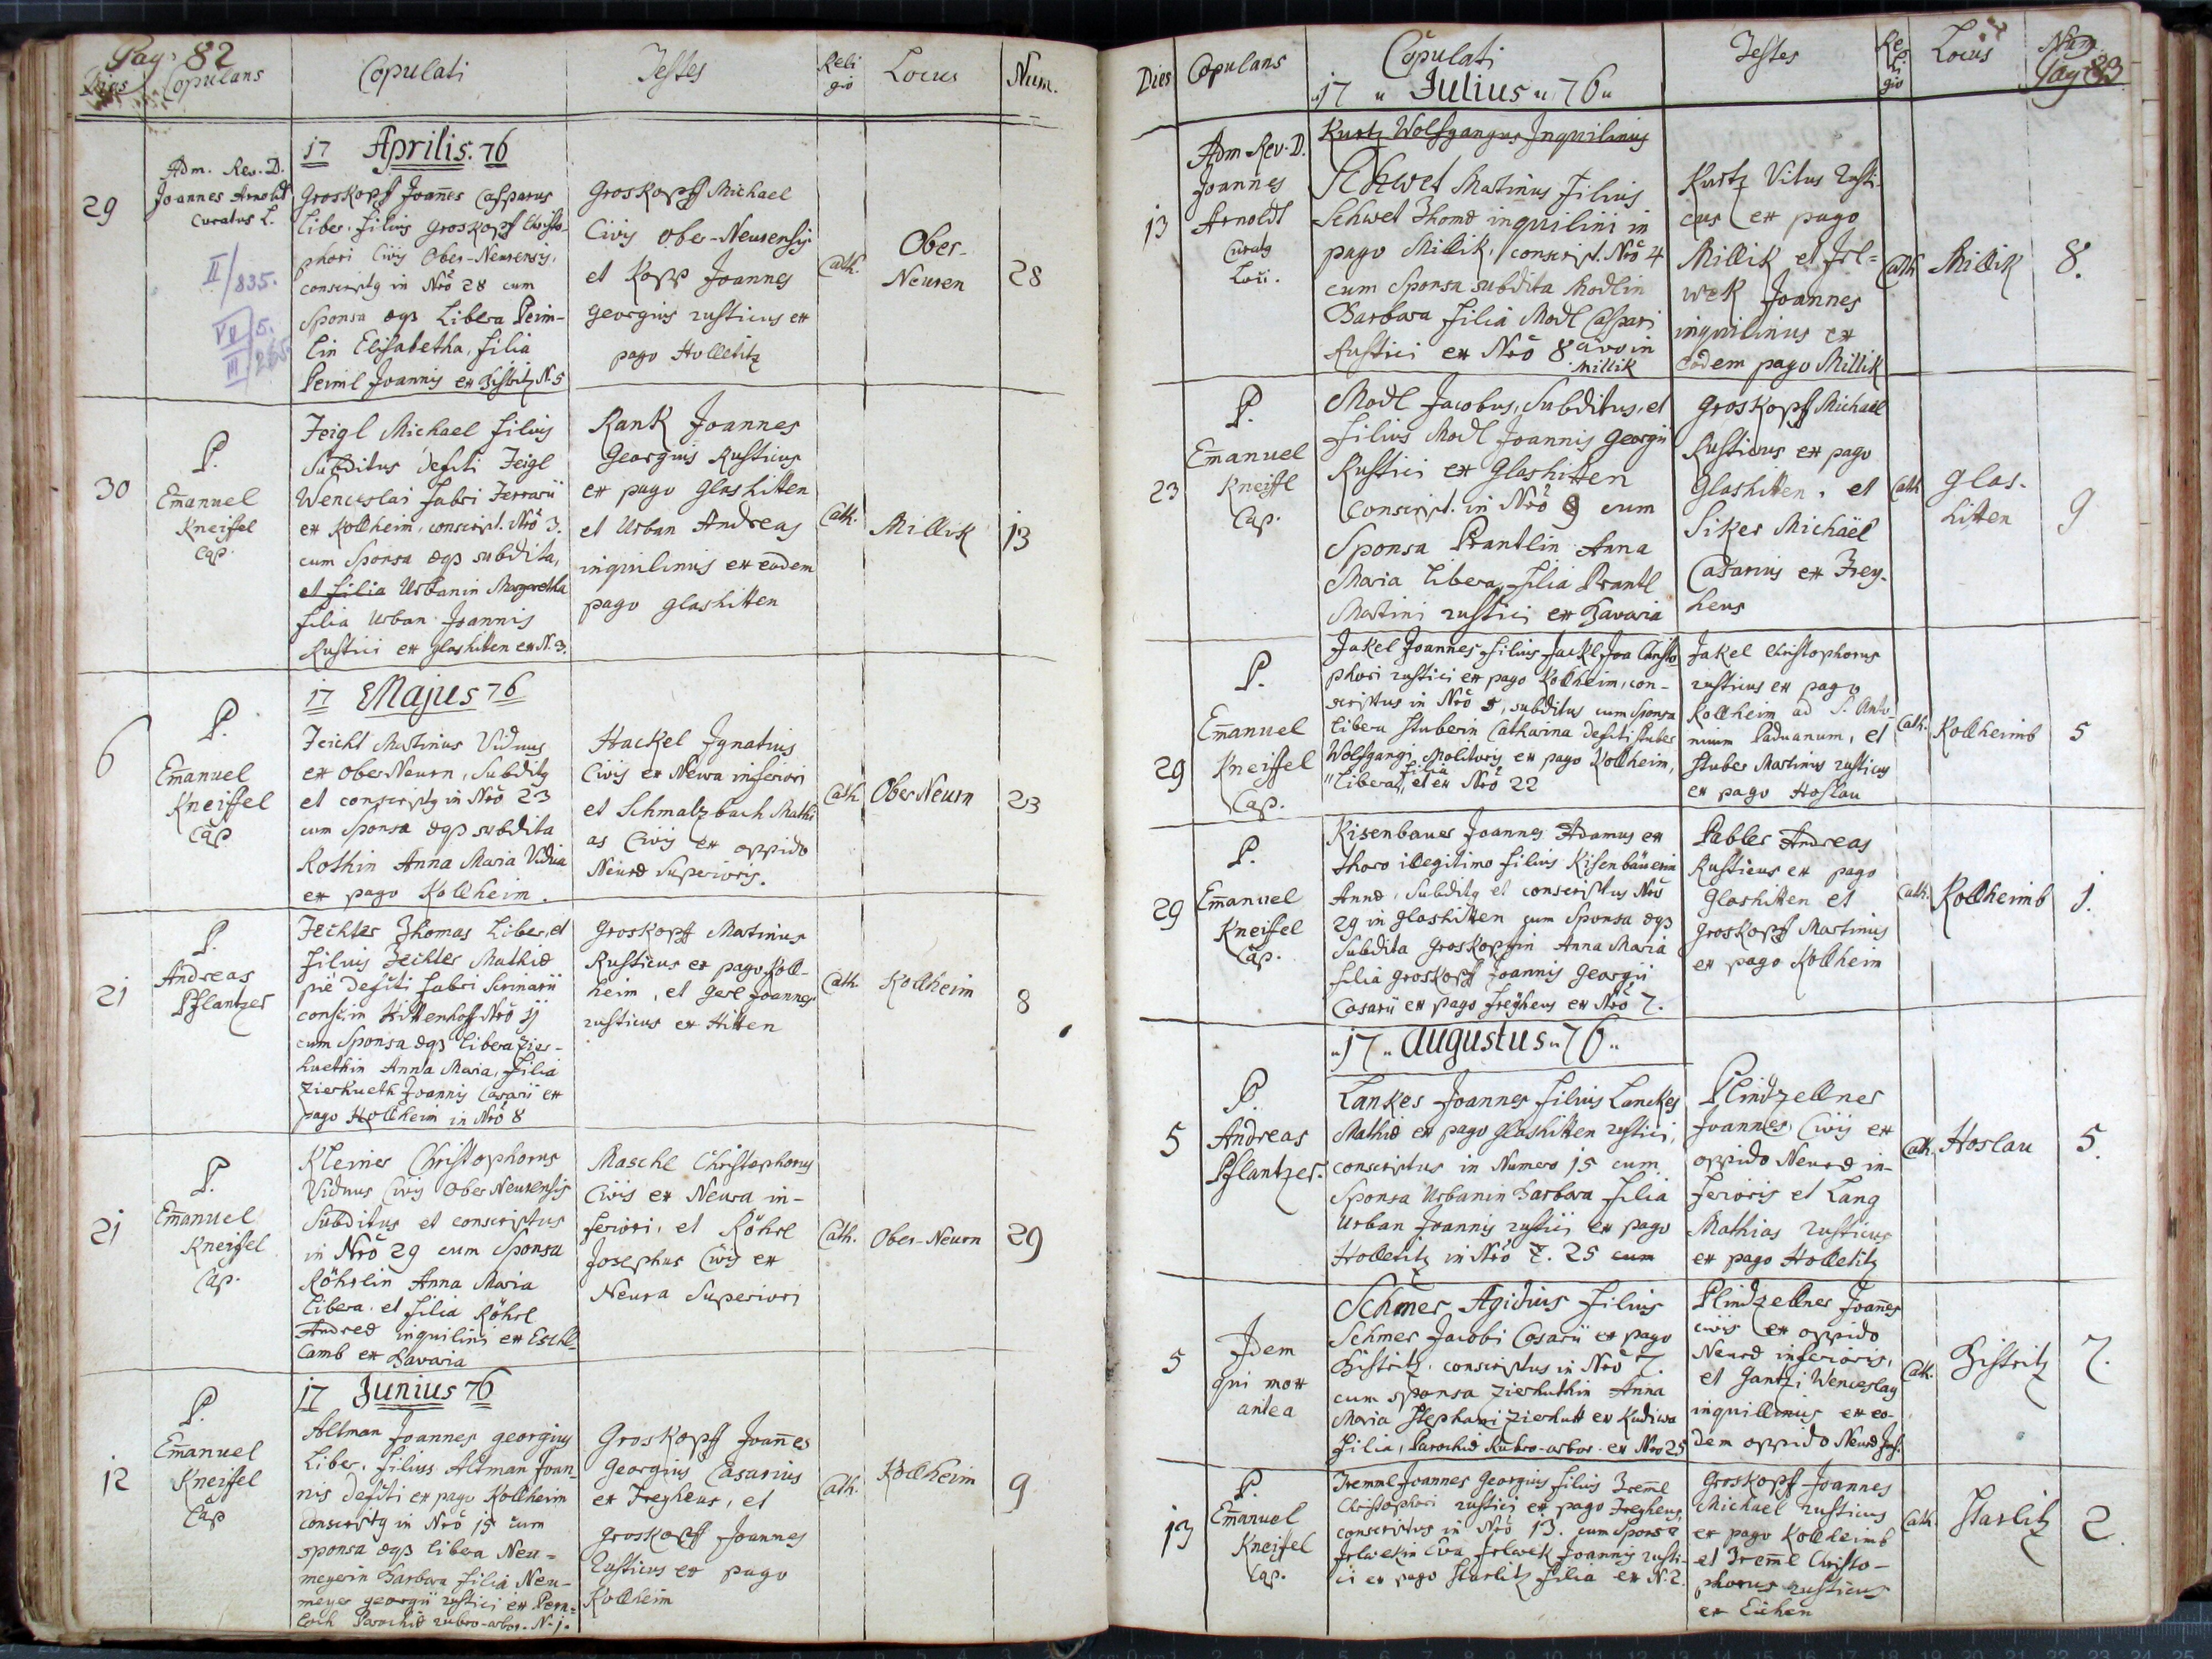 Pag: 82
Dies Copulans Copulati Testes Reli gio Locus Num.
17 Aprilis. 76
29
Adm. Rev. D.
Joannes Arnoldt
Curatus L.
II/835.
Groskopff Joannes Casparus
liber, filius Groskopff Christo-
phori Civis Ober-Neurensis,
conscriptg in Nrō 28 cum
Sponsa aeqs Libera Peim-
lin Elisabetha, filia
Peiml Joannis ex Zistritz N. 5
Groskopff Michael
Civis Ober-Neurensis
et Kopp Joannes
Georgius rusticus ex
pago Holletitz
Cath.
Ober-
Neuren
28
30
P.
Emanuel
Kneissel
Cap.
Feigl Michael filius
Subditus defcti Feigl
Wenceslai fabri Ferrarii
ex Kollheim, conscript. Nrō 3.
cum Sponsa aeqs subdita,
et filia Urbanin Margaretha
filia Urban Joannis
Rustici ex Glashitten ex N. 3.
Rank Joannes
Georgius Rusticus
ex pago Glashitten
et Urban Andreas
inquilinus ex eodem
pago Glashitten
Cath.
Millik
13
17 Majus 76
6
P.
Emanuel
Kneissel
Cap
Feicht Martinus Viduus
ex OberNeurn, Subditg
et conscriptg in Nrō 23
cum Sponsa aeqs subdita
Rothin Anna Maria Vidua
ex pago Kollheim.
Hackel Ignatius
Civis ex Neura inferiori
et Schmalzbach Mathi
as Civis ex oppido
Neurae Superioris.
Cath
OberNeurn
23
21
P.
Andreas
Pflantzer
Fechter Thomas Liber, et
filius Fechter Mathiae
piè defcti fabri Scrinarii
conscr. in Hittenhoff Nrō 11
cum Sponsa aeqs libera Zier-
huethin Anna Maria, filia
Zierhueth Joannis Casarii ex
pago Kollheim in Nrō 8
Groskopff Martinus
Rusticus ex pago Koll-
heim, et Gerl Joannes
rusticus ex Hitten
Cath.
Kollheim
8
21
P.
Emanuel
Kneissel
Cap.
Kleiner Christophorus
Viduus Civis OberNeurensis
Subditus et conscriptus
in Nrō 29 cum Sponsa
Röhrlin Anna Maria
libera et filia Röhrl
Andreae inquilini ex Eschl-
Camb ex Bavaria
Maschl Christophorus
Civis ex Neura in-
feriori, et Röhrl
Josephus Civis ex
Neura Superiori
Cath.
Ober-Neurn
29
17 Junius 76
12
P.
Emanuel
Kneissel
Cap
Altman Joannes georgius
Liber, filius Altman Joan
nis defcti ex pago Kollheim
conscriptg in Nrō 15 cum
sponsa aeqs libera Neu-
meyerin Barbara filia Neu-
meyer georgii rustici ex Pern-
loch Parochiae rubro-arbor. N. 1.
Groskopff Joannes
Georgius Casarius
ex Freyheus, et
Groskopff Joannes
Rusticus ex pago
Kollheim
Cath.
Kollheim
9
Dies Copulans Copulati Testes Re li gio Locus Num
Pag 83
17 Julius 76
Kurtz Wolfgangus Inquilinus
13
Adm Rev. D.
Joannes
Arnoldt
Curatg
Loci.
Schwet Martinus Filius
Schwet Thomae inquilini in
pago Millik, conscript. Nrō 4
cum Sponsa subdita Modlin
Barbara filia Modl Caspari
Rustici ex Nrō 8avo in
Millik
Kurtz Vitus Rusti-
cus ex pago
Millik et Jel-
wek Joannes
inquilinus ex
eodem pago Millik
Cath
Millik
8.
23
P.
Emanuel
Kneissl
Cap.
Modl Jacobus, Subditus, et
filius Modl Joannis Georgii
Rustici ex Glashitten
Conscript. in Nrō 9 cum
Sponsa Prantlin Anna
Maria libera, filia Prantl
Martini rustici ex Bavaria
Groskopff Michael
Rusticus ex pago
Glashitten, et
Siker Michaël
Casarius ex Frey-
heus
Cath
Glas-
hitten
9
29
P.
Emanuel
Kneissel
Cap.
Jakel Joannes filius Jackl Joa Christo
phori rustici ex pago Kollheim, con-
scriptus in Nrō 5, subditus cum Sponsa
libera Stuberin Catharina defcti Stuber
Wolfgangi Molitoris ex pago Kollheim,
Libera, filia et ex Nrō 22
Jakel Christophorus
rusticus ex pago
Kollheim ad S. Anto
nium Paduanum, et
Stuber Martinus rusticus
ex pago Hoslau
Cath.
Kollheimb
5
29
P.
Emanuel
Kneissel
Cap.
Kisenbauer Joannes Adamus ex
thoro illegitimo filius Kisenbäuerin
Annae, Subditg et conscriptus Nrō
29 in Glashitten cum Sponsa aeqs
Subdita Groskopfin Anna Maria
filia Groskopff Joannis Georgii
Casarii ex pago Freÿheus ex Nrō 7.
Pabler Andreas
Rusticus ex pago
Glashitten et
Groskopff Martinus
ex pago Kollheim
Cath.
Kollheimb
1.
17 Augustus 76
5
P.
Andreas
Pflantzer.
Lankes Joannes filius Lanckes
Mathiae ex pago Glashitten rustici,
conscriptus in Numero 15 cum
Sponsa Urbanin Barbara filia
Urban Joannis rustici ex pago
Holletitz in Nrō 7. 25 cum
Plindzellner
Joannes, Civis ex
oppido Neurae in-
ferioris et Lang
Mathias rusticus
ex pago Holletitz
Cath.
Hoslau
5.
5
Idem
qui mox
antea
Schmer Agidius filius
Schmer Jacobi Casarii ex pago
Zistritz, conscriptus in Nrō 7.
cum sponsa Zierhuthin Anna
Maria Stephani Zierhutt ex Kudiwa
filia, Parochiae Rubro-arbor. ex Nro 25
Plindzellner Joannes
civis ex oppido
Neurae inferioris,
et Gantzi Wenceslag
inquillinus ex eo-
dem oppido Neurae Inf.
Cath.
Zistritz
7.
13
P.
Emanuel
Kneissel
Cap.
Tremml Joannes Georgius filius Tremml
Christophori rustici ex pago Freyheus,
conscriptus in Nrō 13. cum Sponsa
Jelwekin Eva Jelwek Joannis rusti-
ci ex pago Starlitz filia ex N. 2.
Groskopff Joannes
Michael rusticus
ex pago Kollheimb
et Tremml Christo-
phorus rusticus
ex Eichen
Cath.
Starlitz
2